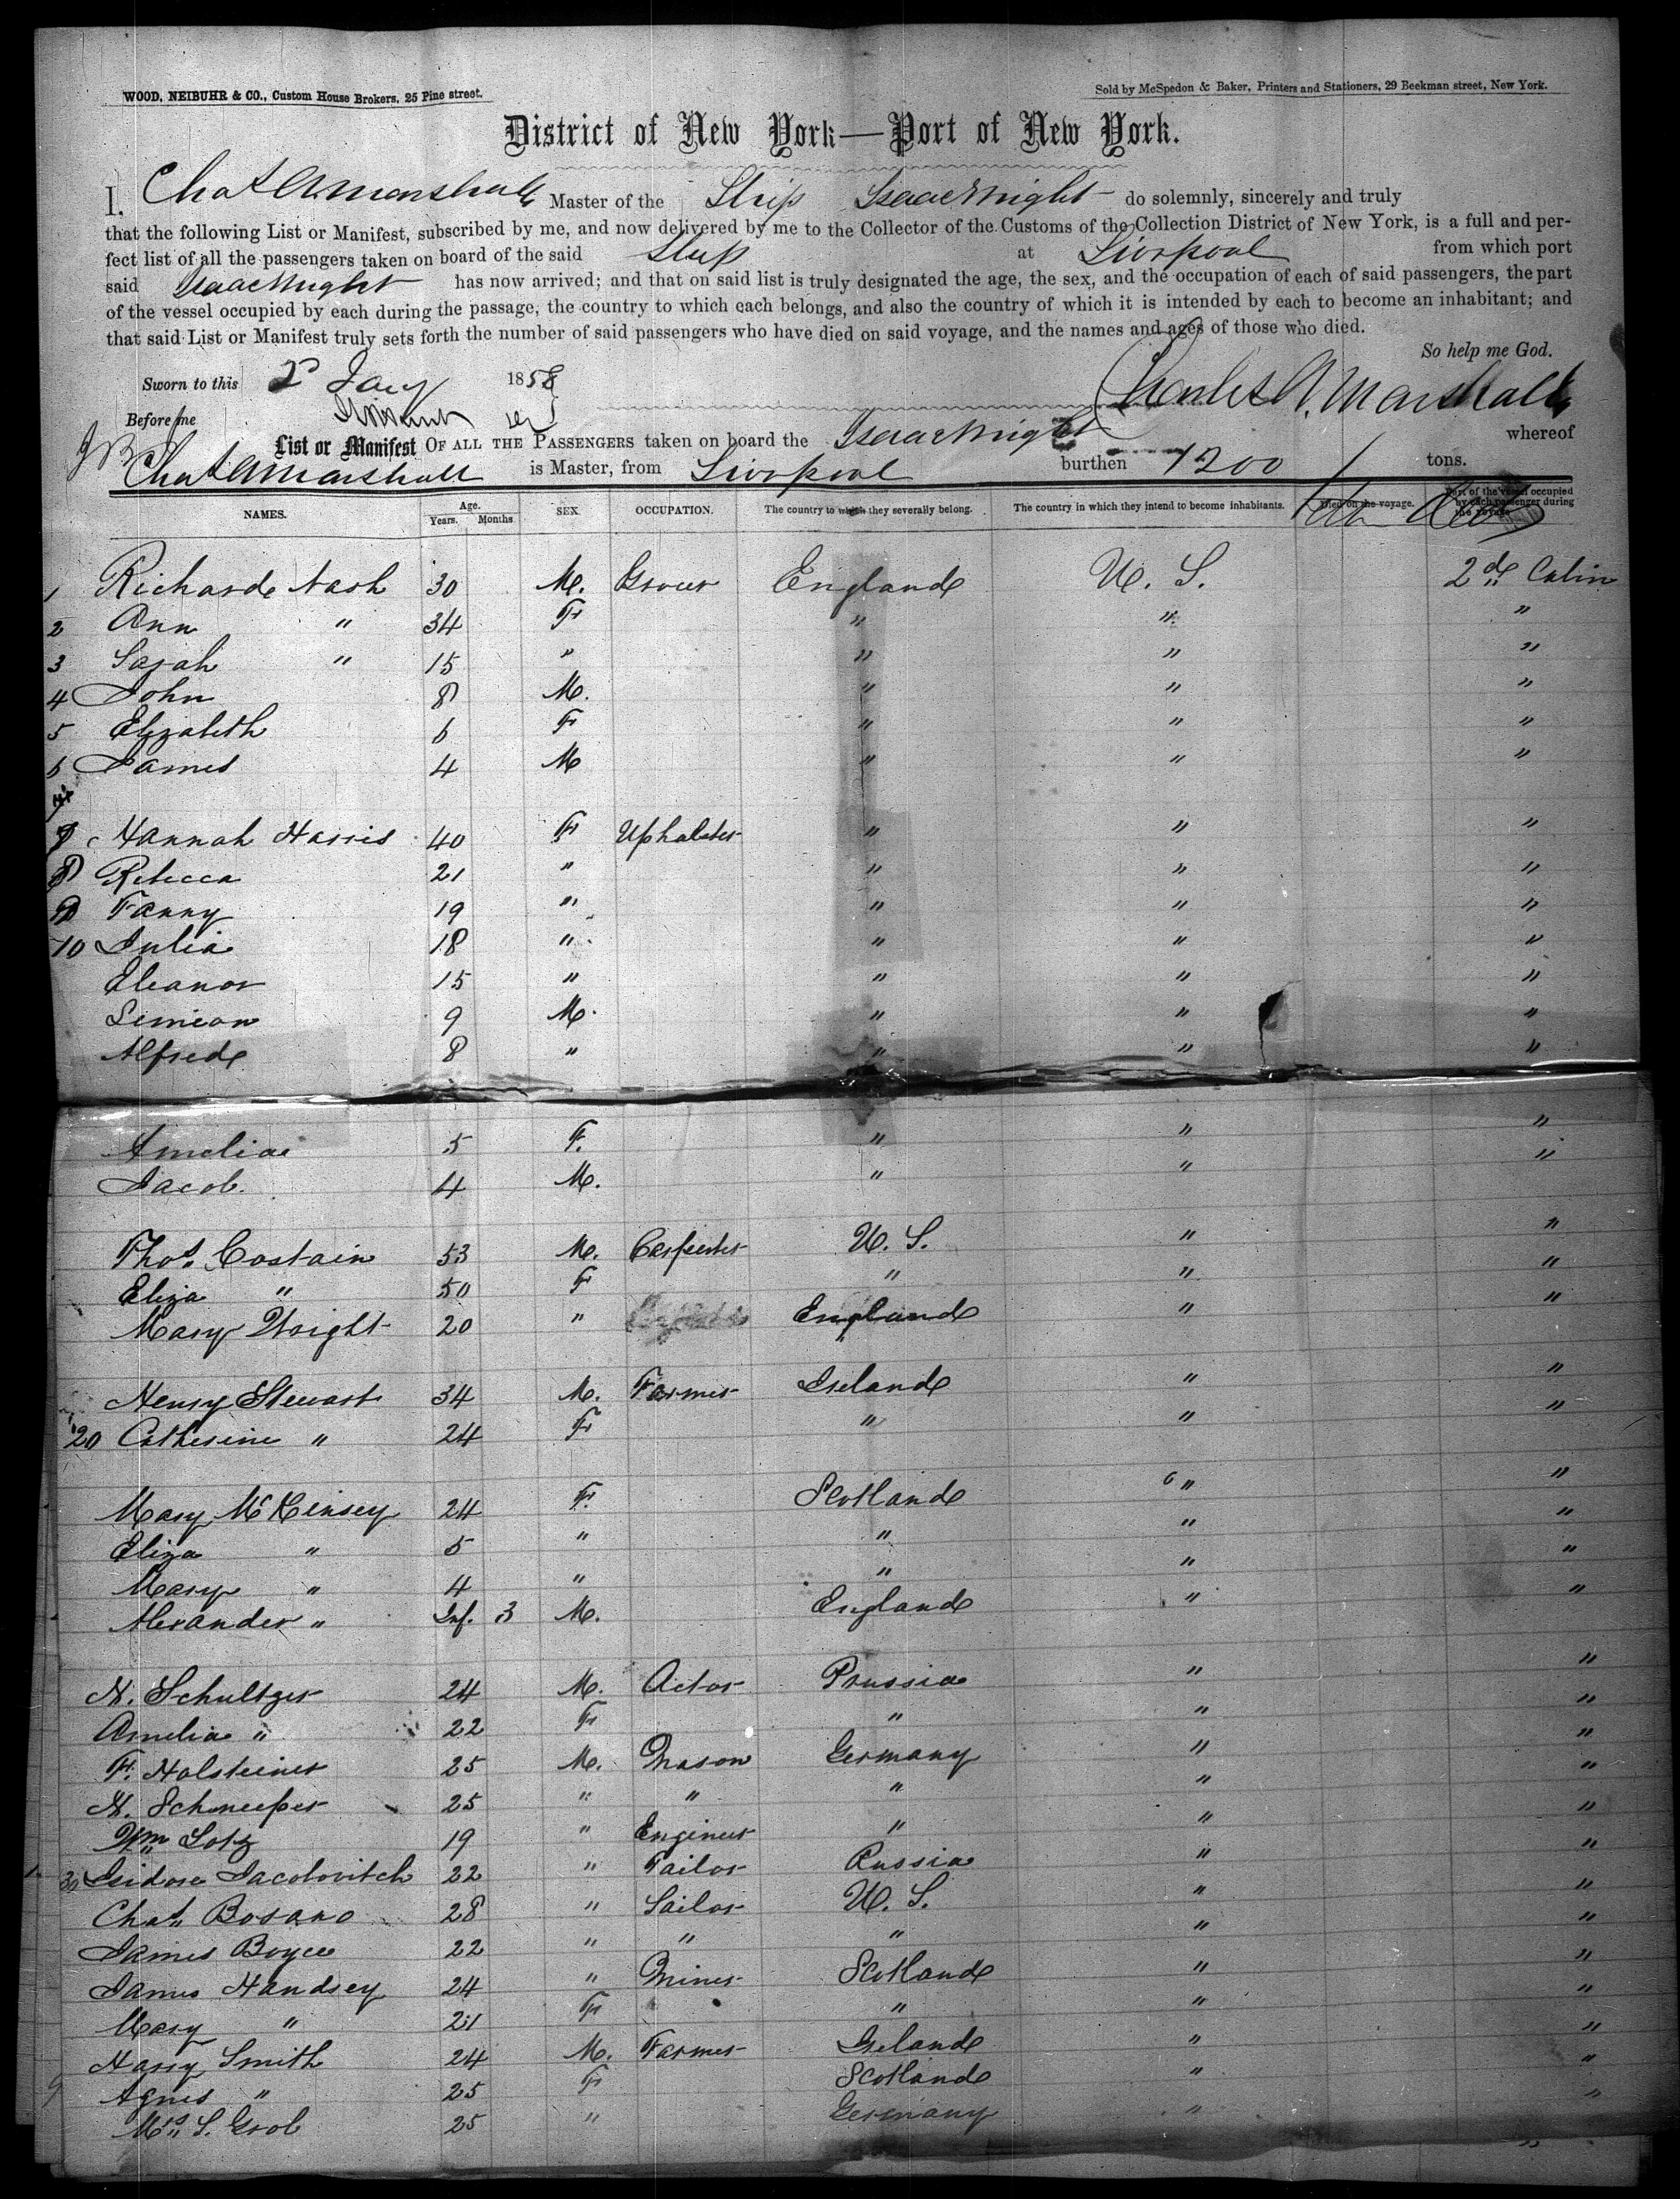 WOOD, NEIBUHR & CO., Custom House Brokers, 25 Pine street.
Sold by McSpedon & Baker, Printers and Stationers, 29 Beekman street, New York.
District of New York—Port of New York.
I, Chas A Marshall Master of the Ship Isaac Wright do solemnly, sincerely and truly
that the following List or Manifest, subscribed by me, and now delivered by me to the Collector of the Customs of the Collection District of New York, is a full and per-
fect list of all the passengers taken on board of the said Ship at Liverpool from which port
said Isaac Wright has now arrived; and that on said list is truly designated the age, the sex, and the occupation of each of said passengers, the part
of the vessel occupied by each during the passage, the country to which each belongs, and also the country of which it is intended by each to become an inhabitant; and
that said List or Manifest truly sets forth the number of said passengers who have died on said voyage, and the names and ages of those who died.
So help me God.
Sworn to this 2d Jany 1858
Charles A. Marshall
Before me
List or Manifest OF ALL THE PASSENGERS taken on board the Isaac Wright whereof
Chas A Marshall is Master, from Liverpool burthen 1200 tons.
NAMES. Age. Years. Months. SEX. OCCUPATION. The country to which they severally belong. The country in which they intend to become inhabitants. Died on the voyage. Part of the vessel occupied by each passenger during the voyage.
1 Richard Nash 30 M. Grocer England U. S. 2d Cabin
2 Ann " 34 F " " "
3 Sarah " 15 " " " "
4 John 8 M. " " "
5 Elizabeth 6 F " " "
6 James 4 M " " "
7 Hannah Harris 40 F Upholster " " "
8 Rebecca 21 " " " "
9 Fanny 19 " " " "
10 Julia 18 " " " "
Eleanor 15 " " " "
Simeon 9 M. " " "
Alfred 8 " " " "
Amelia 5 F. " " "
Jacob 4 M. " "
Thos Costain 53 M. Carpenter U. S. " "
Eliza " 50 F " " "
Mary Wright 20 " England " "
Henry Stewart 34 M. Farmer Ireland " "
20 Catherine " 24 F " " "
Mary McKinsey 24 F. Scotland " "
Eliza " 5 " " " "
Mary " 4 " " " "
Alexander " Inf. 3 M. England " "
H. Schultzer 24 M. Actor Prussia " "
Amelia " 22 F " " "
F. Holsteiner 25 M. Mason Germany " "
H. 25 " " " " "
Wm Lotz 19 " Engineer " " "
30 Isidore Jacobovitch 22 " Tailor Russia " "
Chas Bosano 28 " Sailor U. S. " "
James Boyce 22 " " " " "
James Handsey 24 " Miner Scotland " "
Mary " 21 F " " "
Harry Smith 24 M. Farmer Ireland " "
Agnes " 25 F Scotland " "
Mrs S. Grob 25 " Germany " "